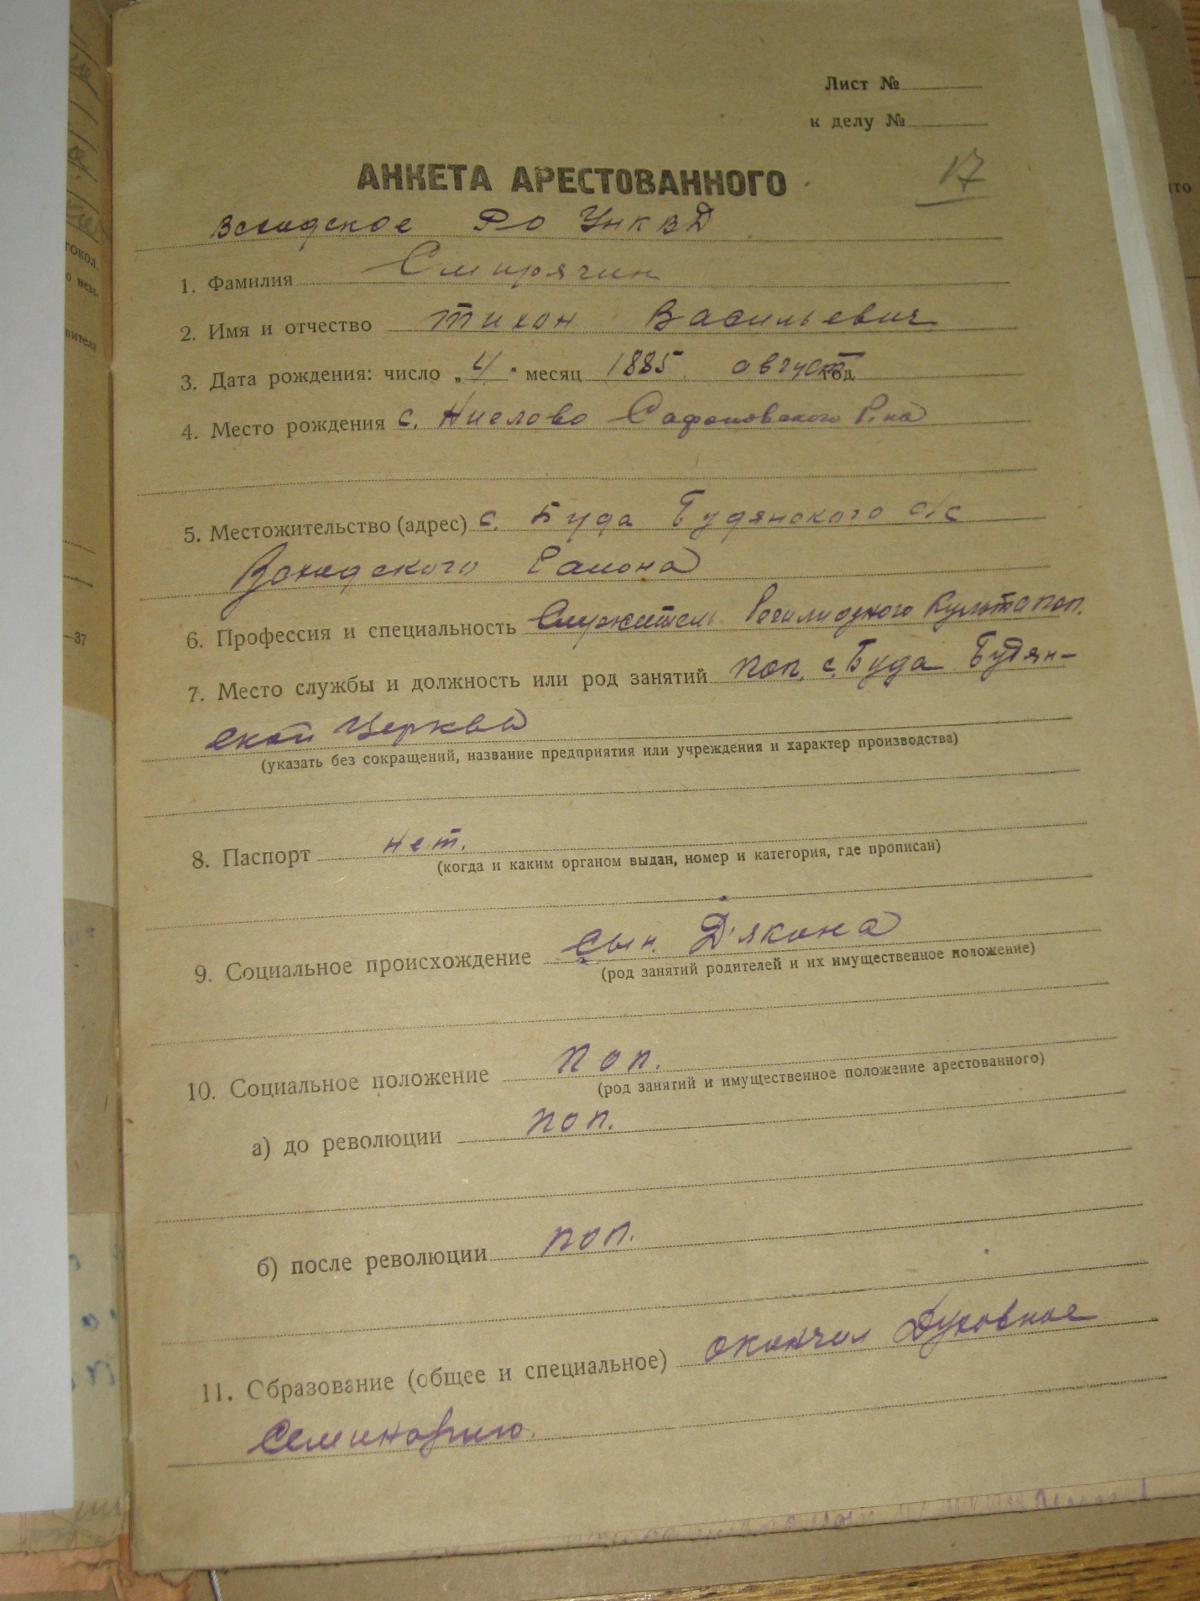 Лист №
к делу №
17
АНКЕТА АРЕСТОВАННОГО
Всходское РО УНКВД
1. Фамилия Смирягин
2. Имя и отчество Тихон Васильевич
3. Дата рождения: число „4“ месяц 1885 август год
4. Место рождения с. Сафоновского р-на
5. Местожительство (адрес) с. Буда Будянского с/с
Всходского района
6. Профессия и специальность Служитель Религиозного Культа поп.
7. Место службы и должность или род занятий поп. с. Буда Будян-
ской Церкви
(указать без сокращений, название предприятия или учреждения и характер производства)
8. Паспорт нет.
(когда и каким органом выдан, номер и категория, где прописан)
9. Социальное происхождение Сын Дьякона
(род занятий родителей и их имущественное положение)
10. Социальное положение поп.
(род занятий и имущественное положение арестованного)
а) до революции поп.
б) после революции поп.
11. Образование (общее и специальное) окончил Духовное
Семинарию.